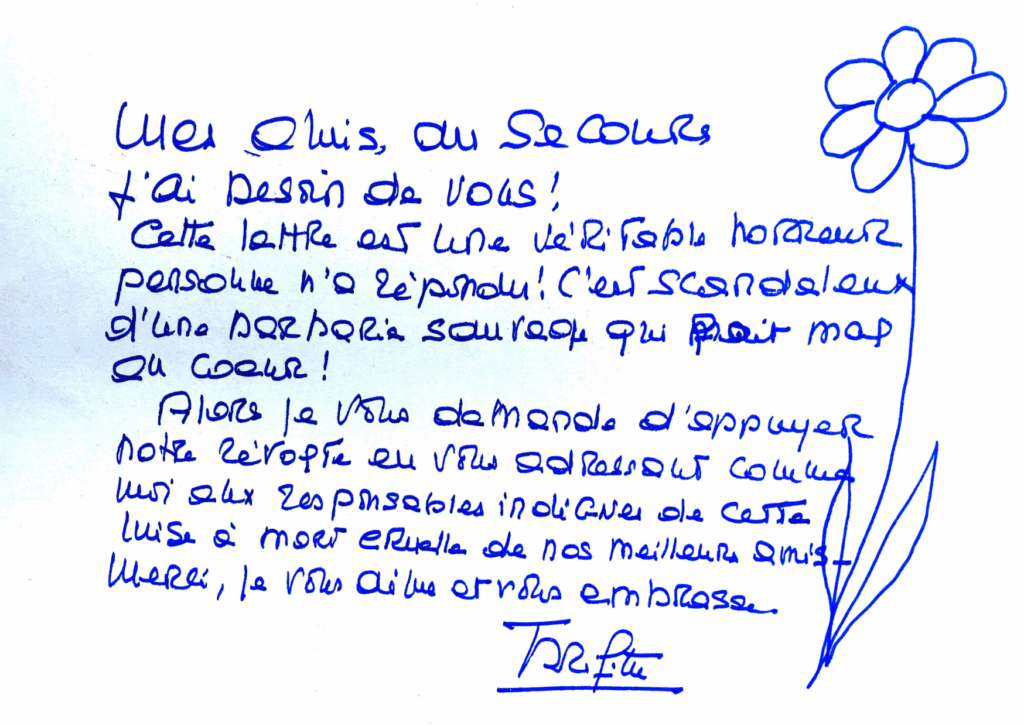 Mes amis, au Secours
J'ai besoin de vous !
Cette lettre est une véritable horreur
personne n'a répondu ! C'est scandaleux
d'une barbarie sauvage qui fait mal
au coeur !
Alors je vous demande d'appuyer
notre révolte en vous adressant comme
moi aux responsables indignes de cette
mise à mort cruelle de nos meilleurs amis _
Merci, je vous aime et vous embrasse